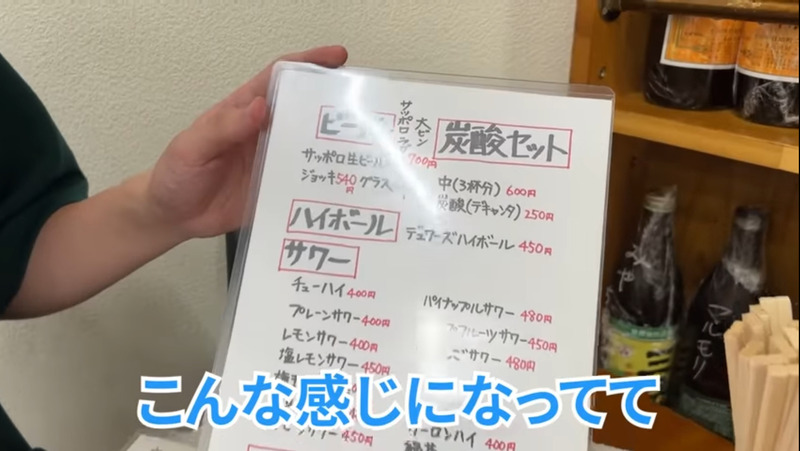 ビール
大ビン
サッポロラガー 700円
サッポロ生ビール
ジョッキ540円 グラス
炭酸セット
中(3杯分) 600円
炭酸(デキャンタ) 250円
ハイボール
デュワーズハイボール 450円
サワー
チューハイ 400円
プレーンサワー 400円
レモンサワー 400円
塩レモンサワー 450円
450円
パイナップルサワー 480円
フルーツサワー 450円
サワー 480円
ーロンハイ 400円
マルモリ
こんな感じになってて